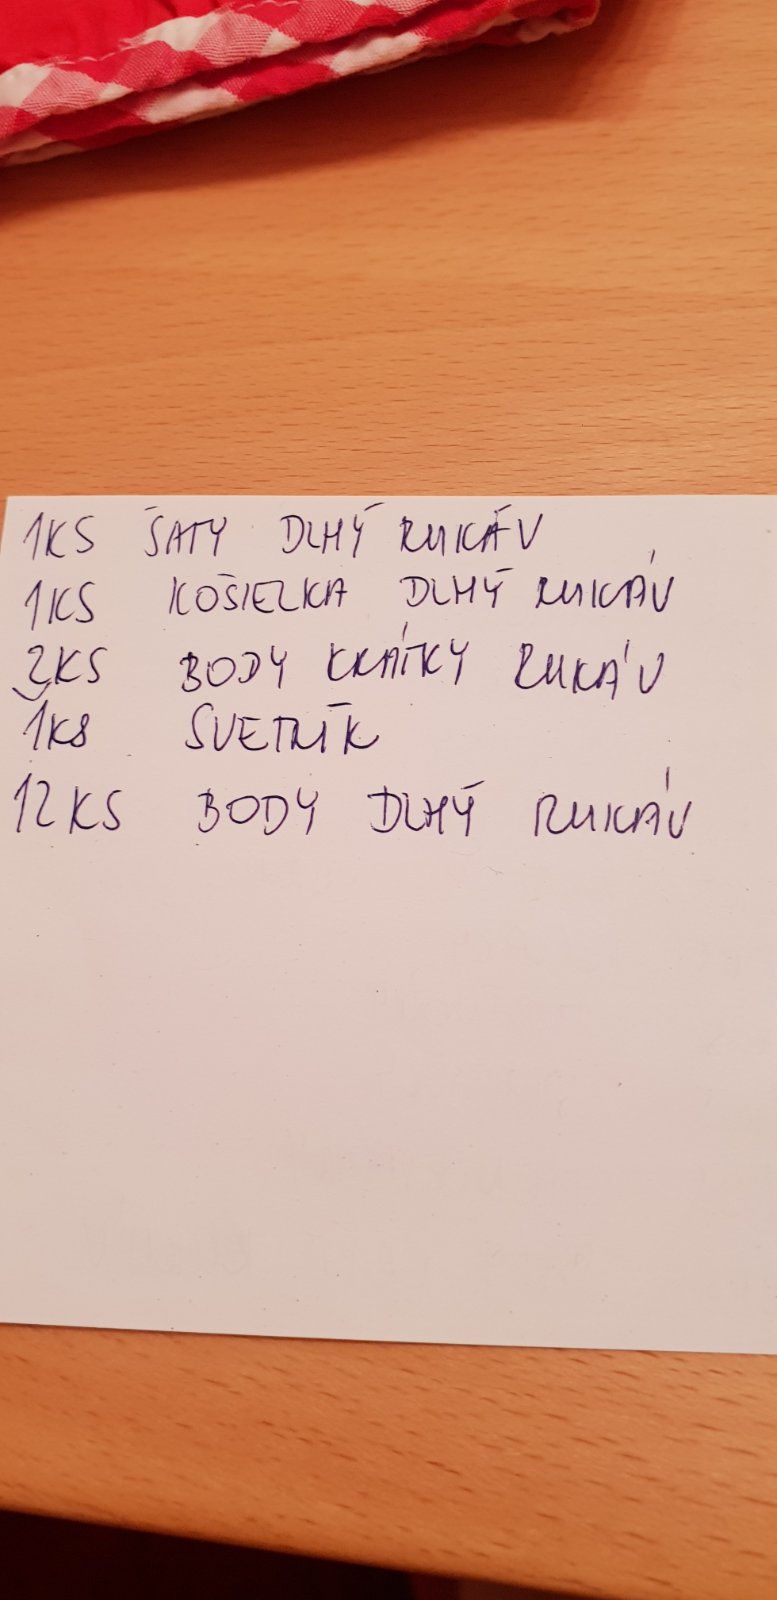 1KS ŠATY DLHÝ RUKÁV
1KS KOŠIELKA DLHÝ RUKÁV
2KS BODY KRÁTKY RUKÁV
1KS SVETRÍK
12KS BODY DLHÝ RUKÁV